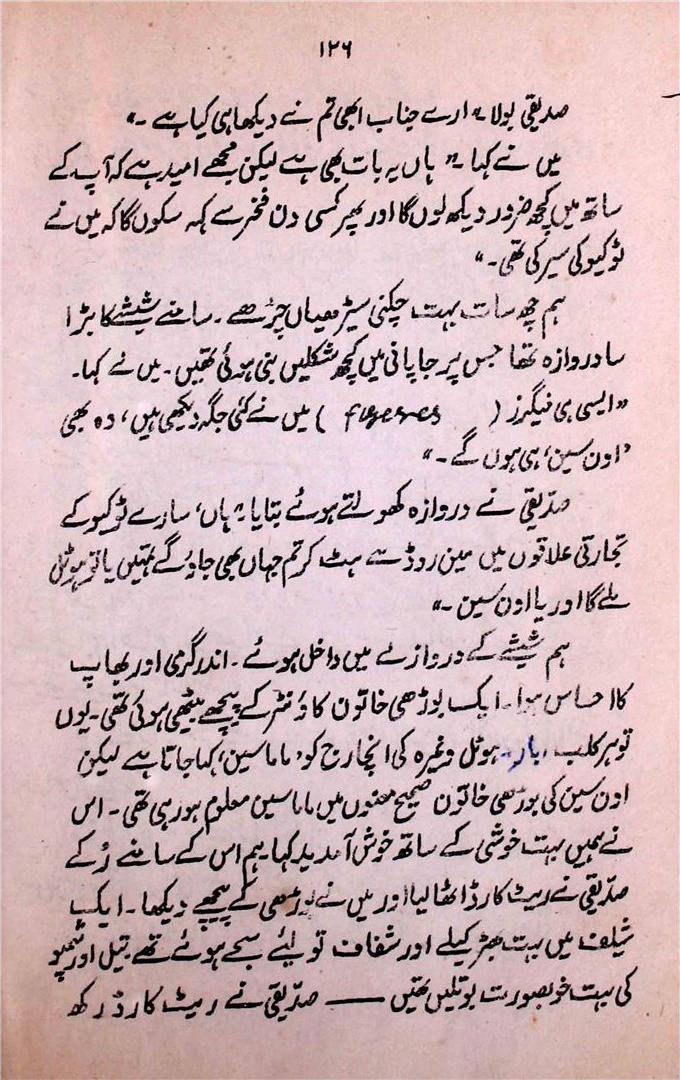 ۱۲۶
صدیقی بولا۔" ارے جناب ابھی تم نے دیکھا ہی کیا ہے ۔"
میں نے کہا ۔" ہاں یہ بات بھی ہے لیکن مجھے امید ہے کہ آپ کے
ساتھ میں کچھ ضرور دیکھ لوں گا اور پھر کسی دن فخر سے کہہ سکوں گا کہ میں نے
ٹوکیو کی سیر کی تھی ۔"
ہم چھ سات بہت چکنی سیڑھیاں چڑھے ۔ سامنے شیشے کا بڑا
سا دروازہ تھا جس پر جاپانی میں کچھ شکلیں بنی ہوئی تھیں ۔ میں نے کہا ۔
" ایسی ہی فیگرز ( figeres ) میں نے کئی جگہ دیکھی ہیں ، وہ بھی
' اون سین ' ہی ہوں گے ۔"
صدّیقی نے دروازہ کھولتے ہوئے بتایا ۔" ہاں ' سارے ٹوکیو کے
تجارتی علاقوں میں مین روڈ سے ہٹ کر تم جہاں بھی جاؤ گے تمہیں یا تو ہوٹل
ملے گا اور یا اون سین ۔"
ہم شیشے کے دروازے میں داخل ہوئے ۔ اندر گرمی اور بھاپ
کا احساس ہوا ۔ ایک بوڑھی خاتون کاؤنٹر کے پیچھے بیٹھی ہوئی تھی ۔ یوں
تو ہر کلب ، بار ، ہوٹل وغیرہ کی انچارج کو ' ماما سین ' کہا جاتا ہے لیکن
اون سین کی بوڑھی خاتون صحیح معنوں میں ماما سین معلوم ہو رہی تھی ۔ اس
نے ہمیں بہت خوشی کے ساتھ خوش آمدید کہا ۔ ہم اس کے سامنے رُکے
صدّیقی نے ریٹ کارڈ اٹھا لیا اور میں نے بوڑھی کے پیچھے دیکھا ۔ ایک
شیلف میں بہت بھڑکیلے اور شفاف تولئے سجے ہوئے تھے تیل اور شمپو
کی بہت خوبصورت بوتلیں تھیں ـــــ صدّیقی نے ریٹ کارڈ رکھ